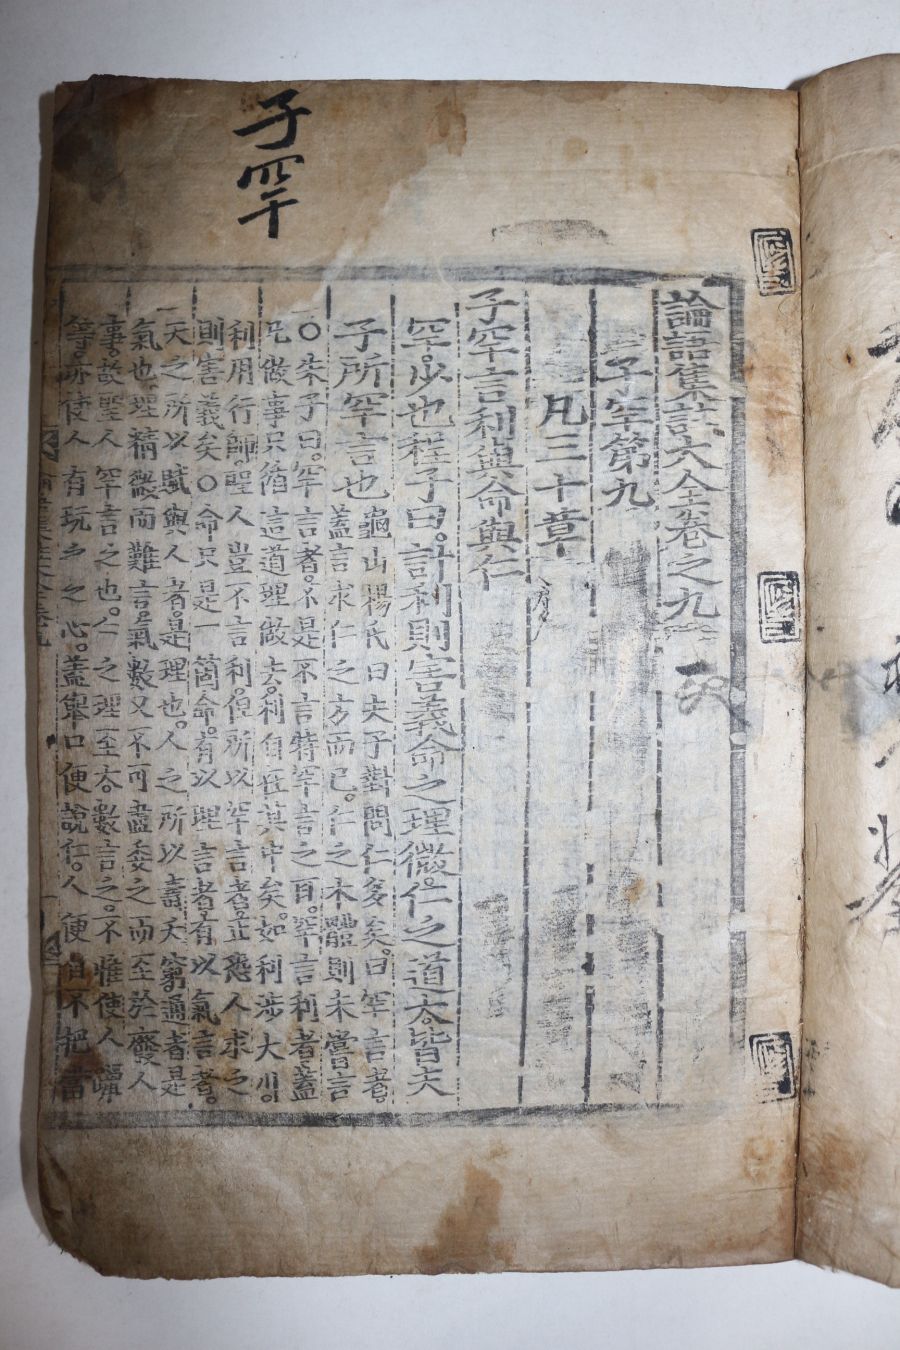 子罕
論語集註大全卷之九
子罕第九
凡三十章
子罕言利與命與仁
罕。少也程子曰。計利則害義命之理微。仁之道大。皆夫
子所罕言也
龜山楊氏曰夫子對問仁多矣。曰罕言者。
蓋言求仁之方而已。仁之本體則未嘗言
○朱子曰。罕言者。不是不言特罕言之耳。罕言利者。蓋
凡做事只循這道理做去。利自在其中矣。如利涉大川。
利用行師。聖人豈不言利。但所以罕言者正恐人求之
則害義矣。○命只是一箇命。有以理言者有以氣言者。
天之所以賦與人者。是理也。人之所以壽夭窮通者是
氣也。理精微而難言。氣數又不可盡委之而至於廢人
事。故聖人罕言之也。仁之理至大。數言之。不惟使人躐
等。亦使人有玩之之心。蓋擧口便說仁。人便自不把當